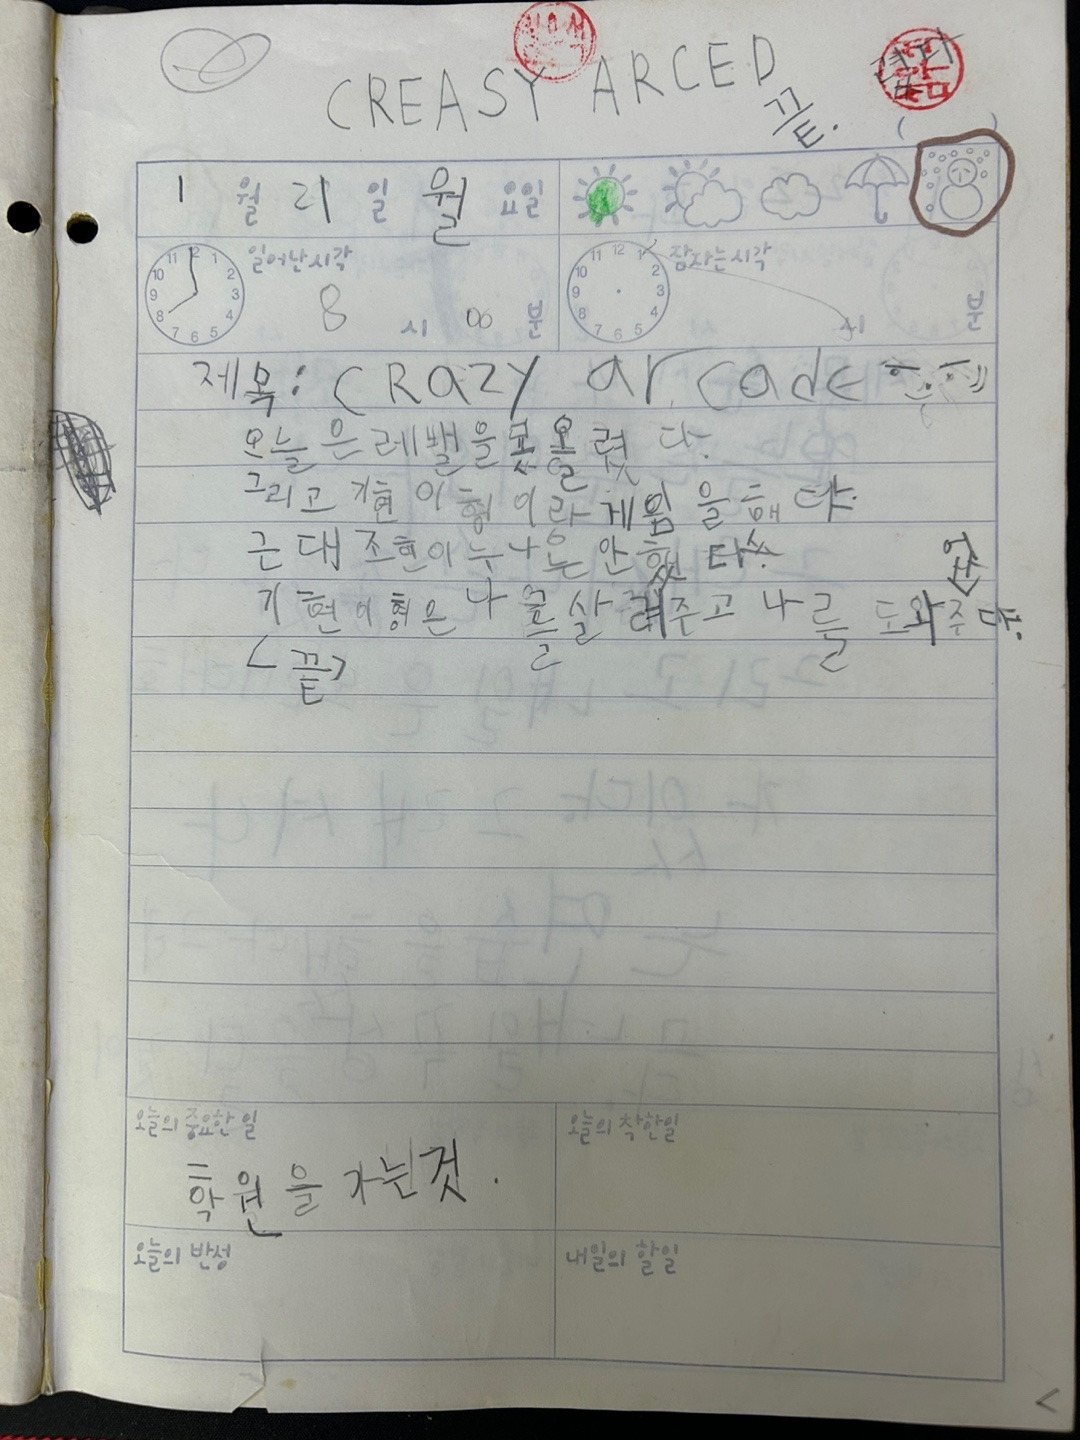 CREASY ARCED
끝.
1 월 21 일 월 요일
일어난시각
8 시 00 분
잠자는시각
시 분
제목: CRazy arcade
오늘은레밸을 올렸다.
그리고 기현이형이라게임을해다.
근대조현이누나은안했다.
기현이형은 나를살려주고 나를 도와주다.
<끝>
오늘의 중요한 일
학원을 가는것.
오늘의 착한일
오늘의 반성
내일의 할일